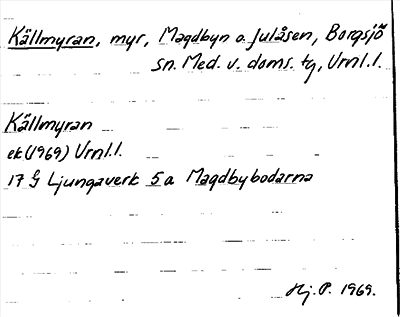 Källmyran, myr, Magdbyn o. Julåsen, Borgsjö
sn. Med. v. doms. tg, Vrnl.l.
Källmyran
ek (1969) Vrnl.l.
17 G Ljungaverk 5 a Magdbybodarna
Hj. P. 1969.